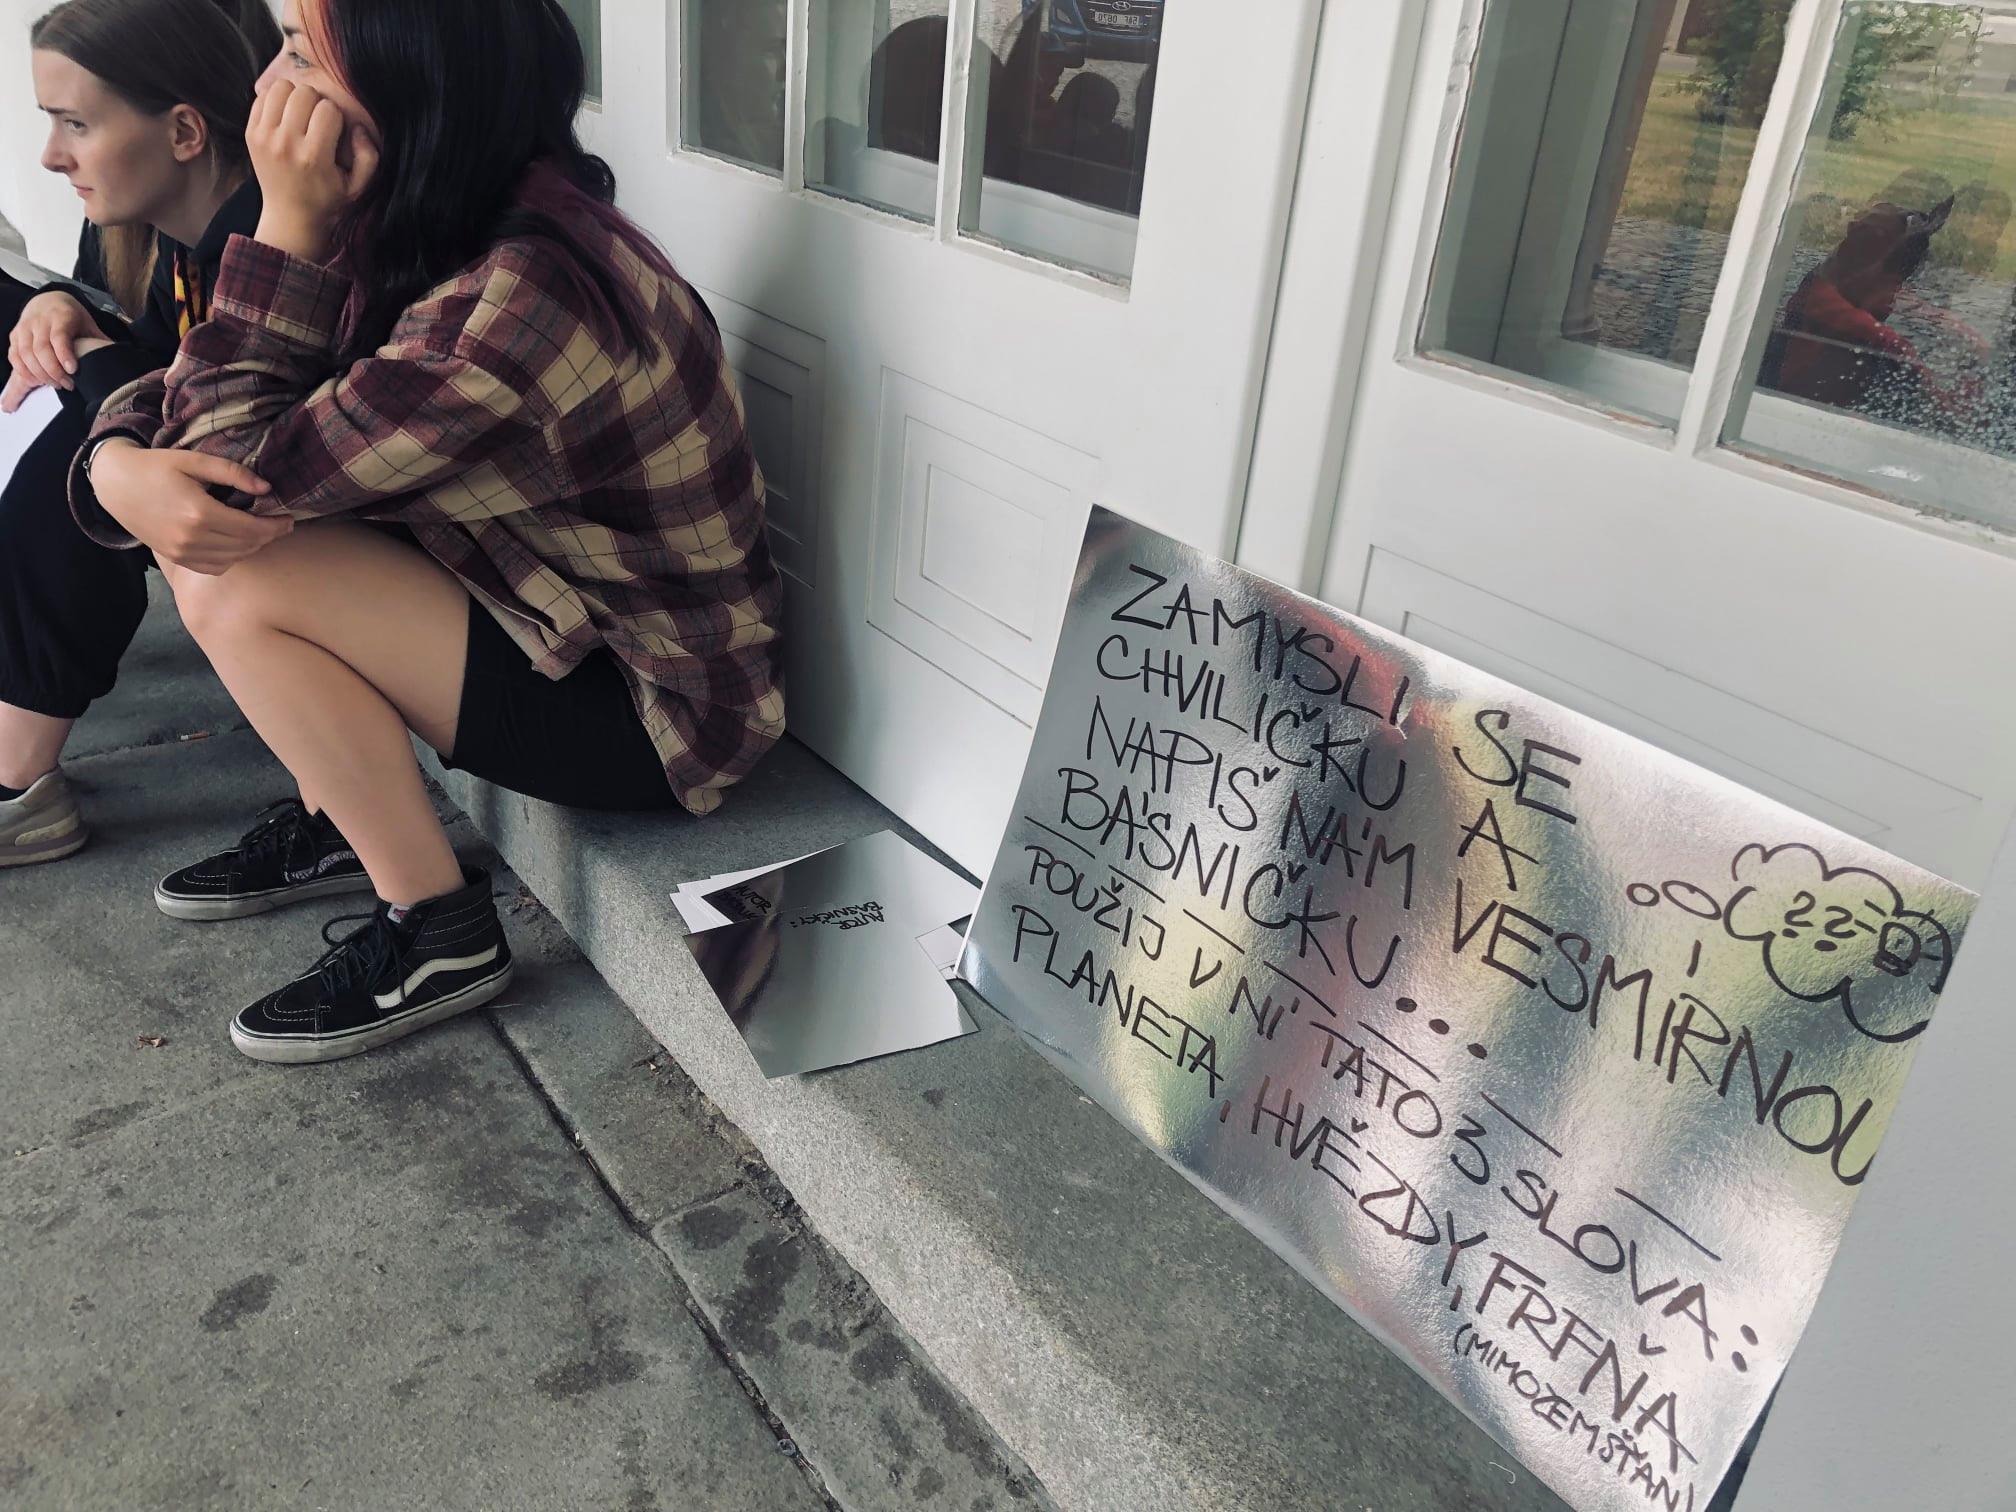 ZAMYSLI SE
CHVILIČKU A
NAPIŠ NÁM VESMÍRNOU
BÁSNIČKU...
POUŽIJ V NÍ TATO 3 SLOVA:
PLANETA, HVĚZDY, FRFŇA
(MIMOZEMŠŤAN)
??
AUTOR
BÁSNIČKY:
AUTOR